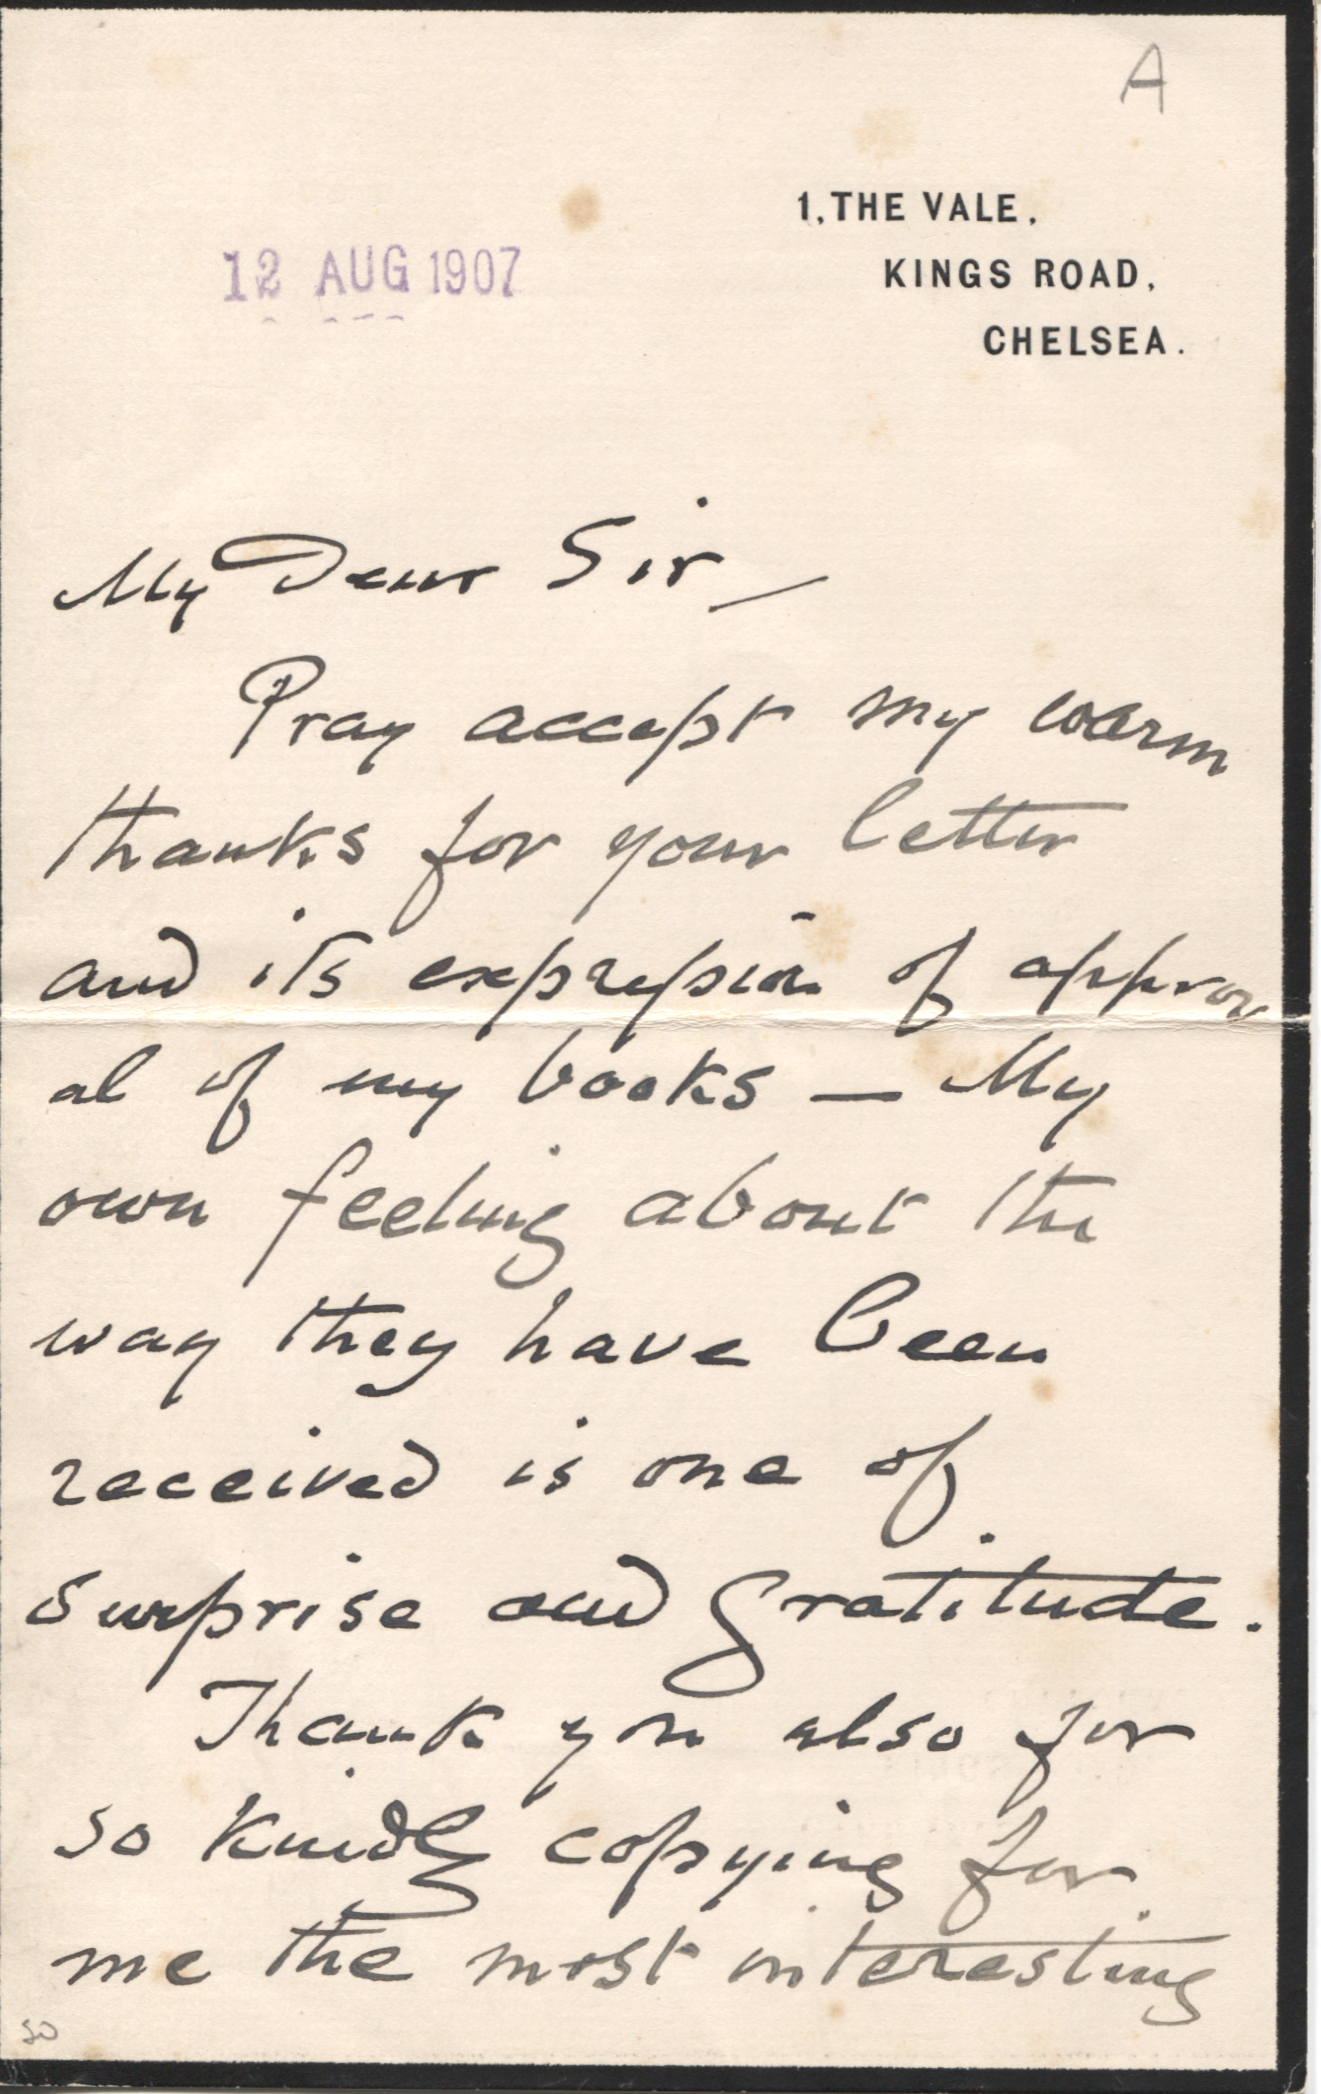 A
1, THE VALE,
KINGS ROAD,
CHELSEA.
12 AUG 1907
My Dear Sir —
Pray accept my warm
thanks for your letter
and its expression of approv
al of my books — My
own feeling about the
way they have been
received is one of
surprise and gratitude.
Thank you also for
so kindly copying for
me the most interesting
50